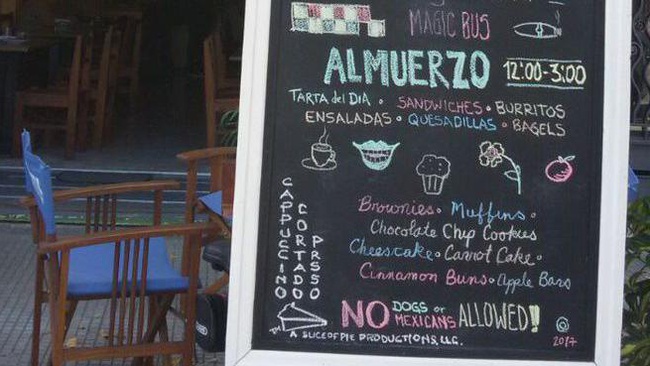 MAGIC BUS
ALMUERZO 12:00-3:00
TARTA del DIA • SANDWICHES • BURRITOS
ENSALADAS • QUESADILLAS • BAGELS
CAPPUCCINO
CORTADO
PRSSO
Brownies • Muffins •
Chocolate Chip Cookies
Cheesecake • Carrot Cake •
Cinnamon Buns • Apple Bars
NO DOGS or MEXICANS ALLOWED!!
A SLICEOFPIE PRODUCTIONS, LLC.
© 2017